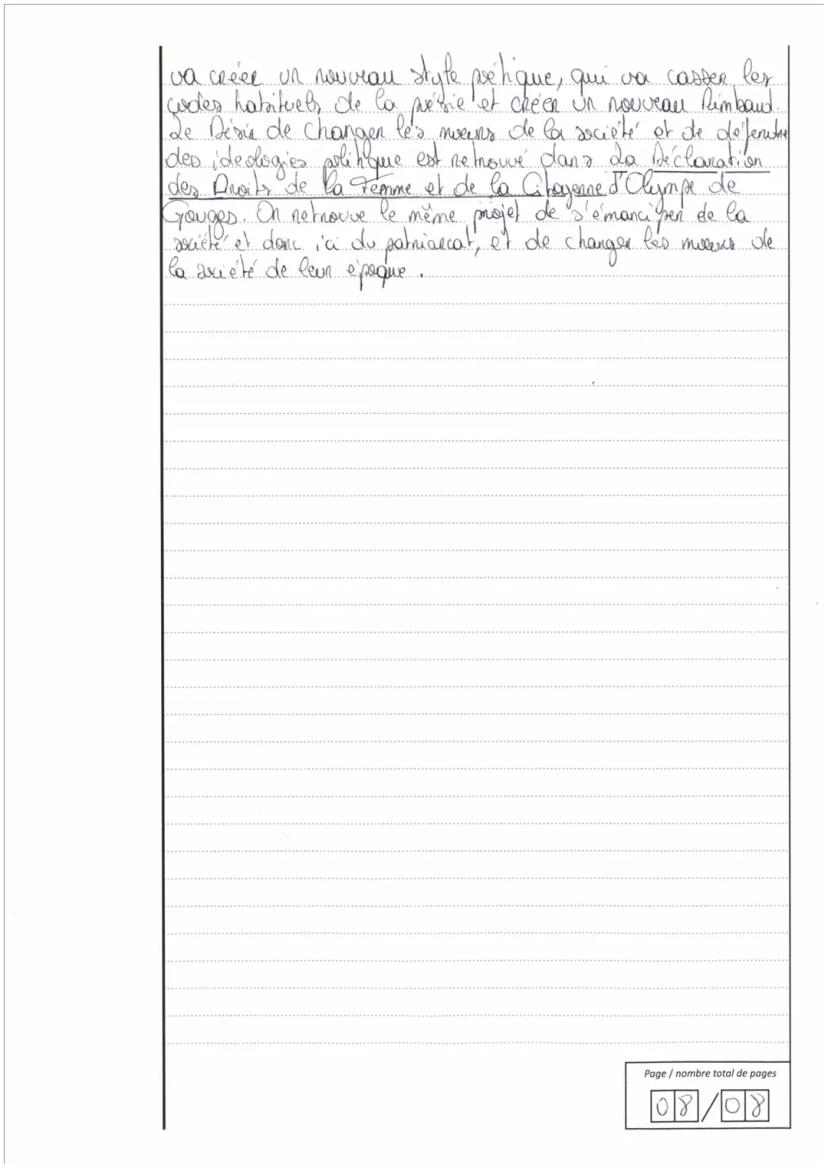 va créer un nouveau style poétique, qui va casser les
codes habituels de la poésie et créer un nouveau Rimbaud.
Le Désir de changer les moeurs de la société et de défendre
des ideologies politique est retrouvé dans la Déclaration
des Droits de la Femme et de la Citoyenne d'Olympe de
Gouges. On retrouve le même projet de s'émanciper de la
société et donc ici du patriarcat, et de changer les moeurs de
la société de leur époque.
Page / nombre total de pages
08/08